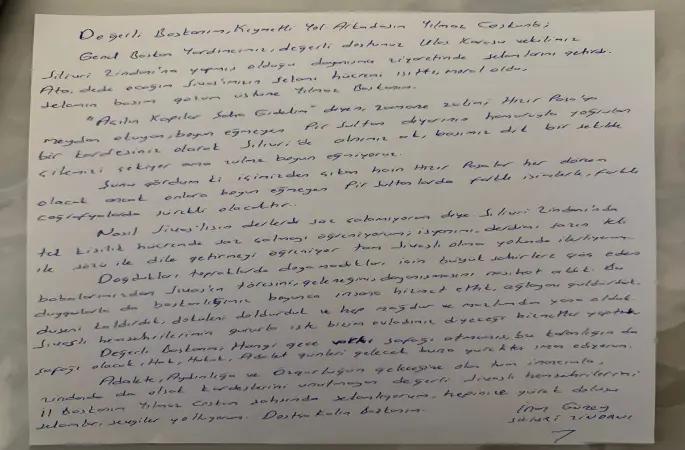 Değerli Başkanım, Kıymetli Yol Arkadaşım Yılmaz Coşkun'a;
Genel Başkan Yardımcımız, değerli dostumuz Ulaş Karasu vekilimiz
Silivri Zindanı'na yapmış olduğu dayanışma ziyaretinde selamlarını getirdi.
Ata, dede ocağım Sivas'ımızın selamı hücremi ısıttı, moral oldu.
Selamın başım gözüm üstüne Yılmaz Başkanım.
"Açılın Kapılar Şaha Gidelim" diyen, zamane zalimi Hızır Paşa'ya
meydan okuyan, boyun eğmeyen Pir Sultan diyarının hamuruyla yoğrulan
bir kardeşiniz olarak Silivri'de alnımız ak, başımız dik bir şekilde
çilemizi çekiyor ama zulme boyun eğmiyoruz.
Şunu gördüm ki içimizden çıkan hain Hızır Paşalar her dönem
olacak ancak onlara boyun eğmeyen Pir Sultanlarda farklı isimlerle, farklı
coğrafyalarda sürekli olacaktır.
Nasıl Sivas'lısın derlerdi saz çalamıyorsun diye. Silivri Zindanı'nda
tek kişilik hücremde saz çalmayı öğreniyorum; isyanımı, derdimi sazın teli
ile sözü ile dile getirmeyi öğreniyor tam Sivaslı olma yolunda ilerliyorum.
Doğdukları topraklarda doyamadıkları için büyük şehirlere göç eden
babalarımızdan Sivas'ın töresini, geleneğini, dayanışmasını nasihat aldık. Bu
duygularla da başkanlığımız boyunca insana hizmet ettik, ağlayanı güldürdük.
düşeni kaldırdık, döküleni doldurduk ve hep mağdur ve mazlumdan yana olduk.
Sivaslı hemşehrilerimin gururla işte bizim evladımız diyeceği hizmetler yaptık.
Değerli Başkanım; Hangi gece şafağı atmamış, bu karanlığın da
şafağı olacak, Hak, Hukuk, Adalet günleri gelecek buna yürekten iman ediyorum.
Adalete, Aydınlığa ve Özgürlüğün geleceğine olan tam inancımla,
zindanda da olsak kardeşlerini unutmayan değerli Sivaslı hemşehrilerimi
İl Başkanım Yılmaz Coşkun şahsında selamlıyorum, hepinize yürek dolusu
selamlar, sevgiler yolluyorum. Dostça kalın Başkanım.
İnan Güney
Silivri Zindanı
7